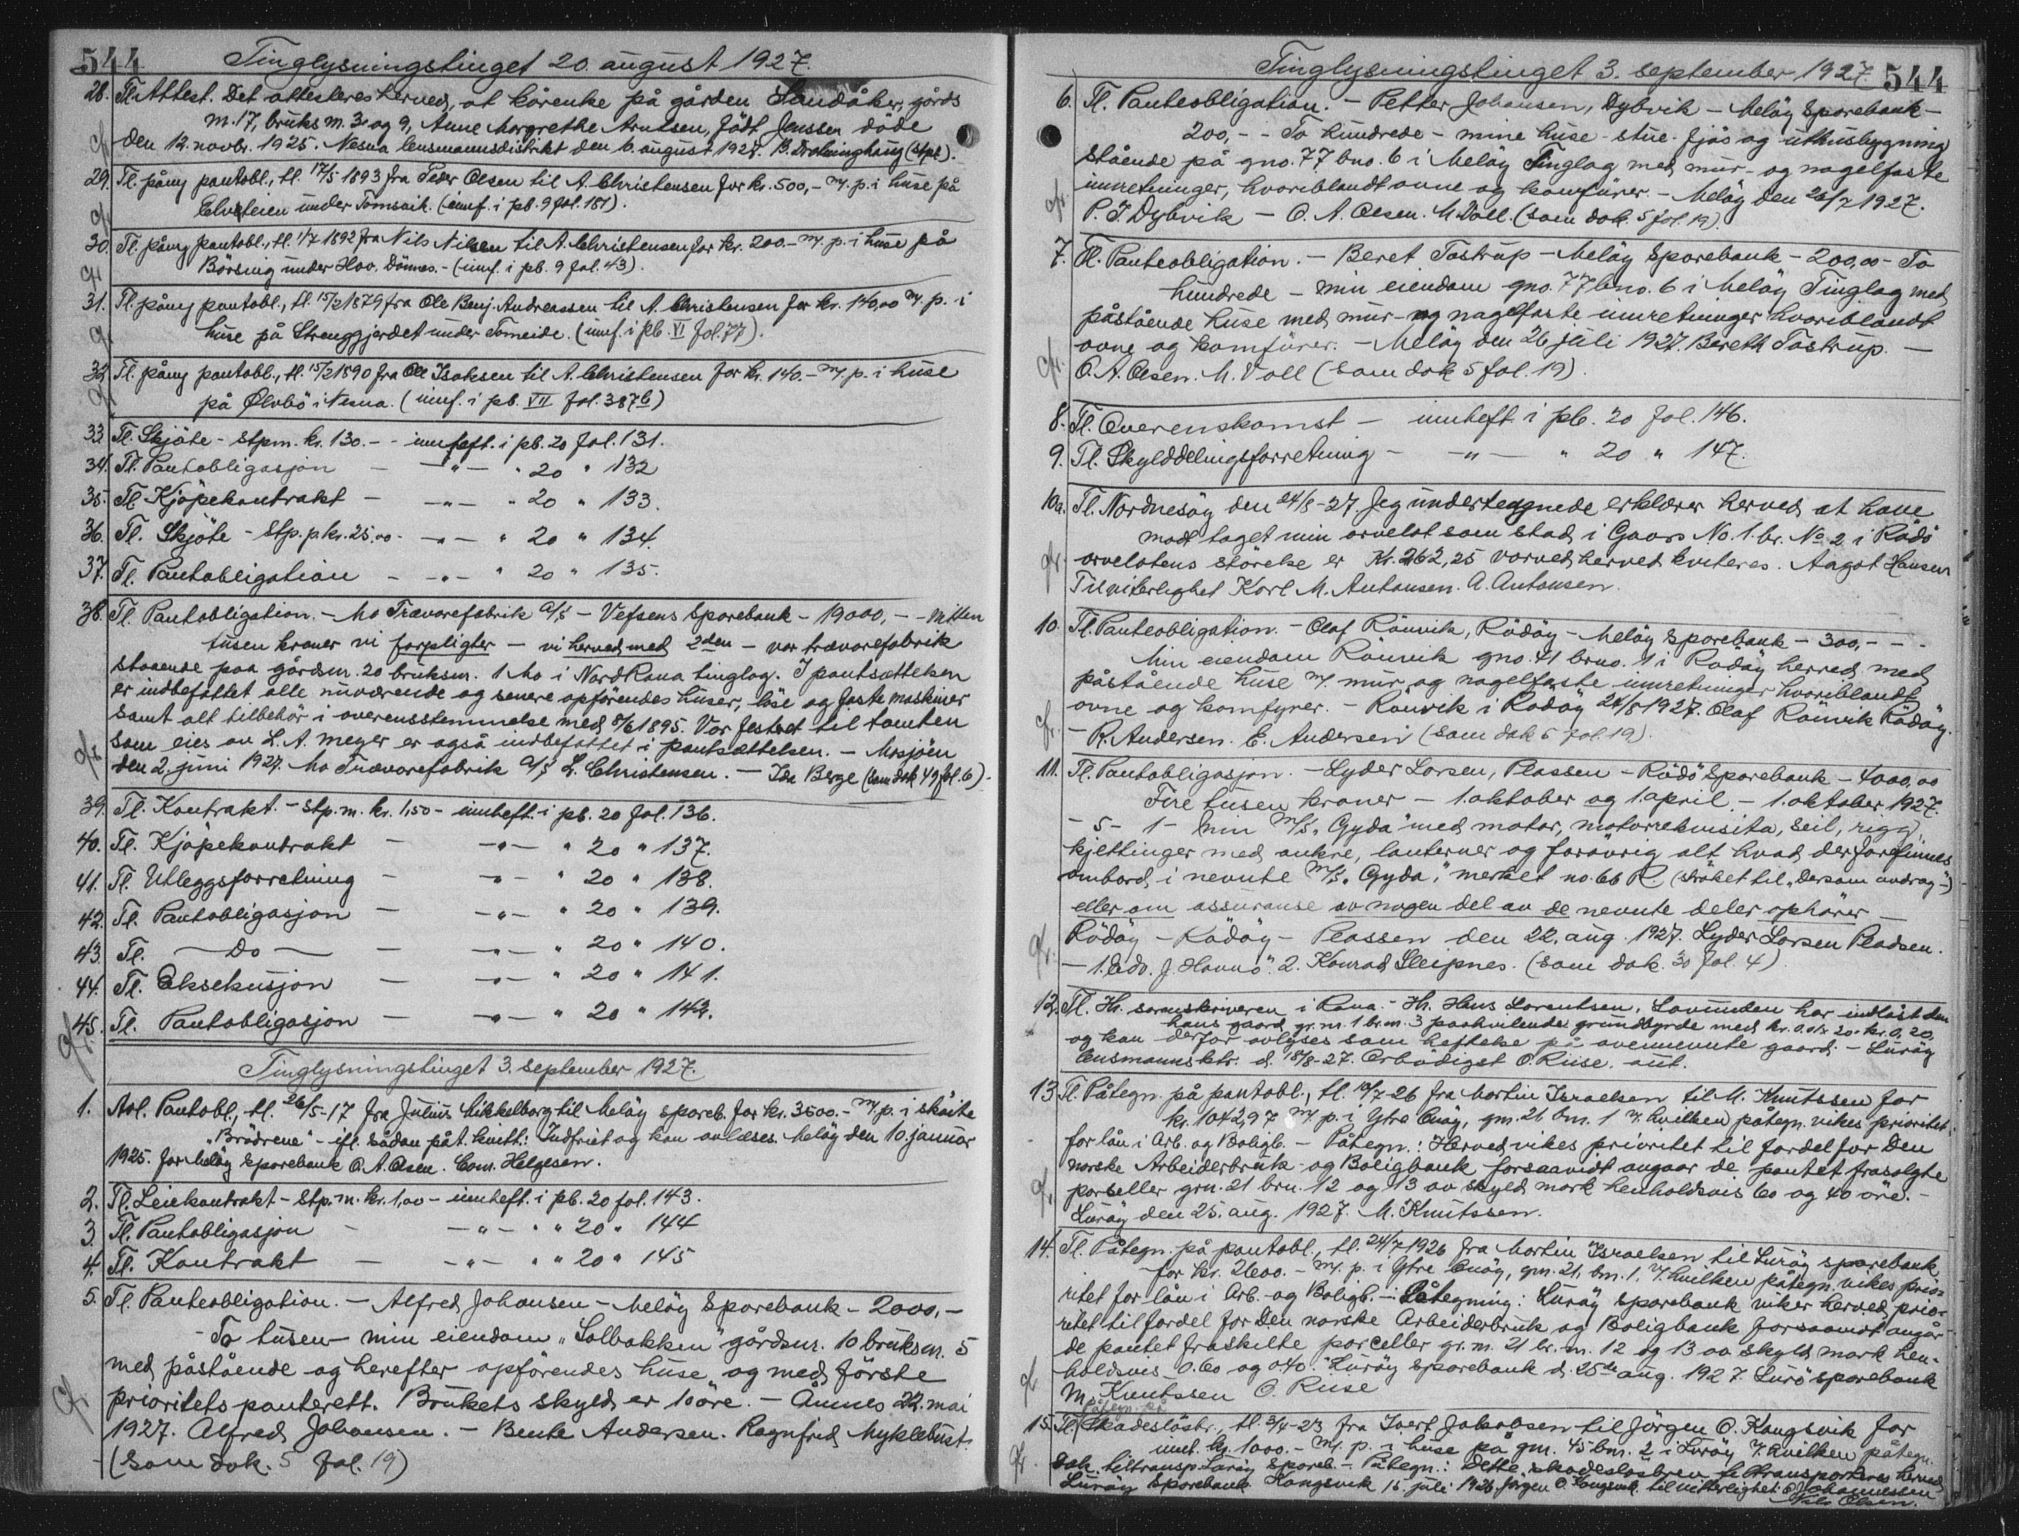 544
Tinglysningstinget 20. august 1927.
28. Tl. Attest. Det attesteres herved, at kårenke på gården Sandåker, gårds
nr. 17, bruks nr. 3 og 9, Anne Margrethe Arntsen, født Jenssen døde
den 12. novbr. 1925. Nesna lensmannsdistrikt den 6. august 1927. B. Drotninghaug (stpl).
29. Tl. påny pantobl., tl. 17/5 1893 fra Peder Olsen til A. Christensen for kr. 500,- m. p. i huse på
Elvsteien under Tomsvik. (innf. i pb. 9 fol. 181).
30. Tl. påny pantobl., tl. 1/7 1892 fra Nils Nilsen til A. Christensen for kr. 200.- m. p. i huse på
Börsvig under Hov. Dönnes.- (innf. i pb. 9 fol. 43).
31. Tl. påny pantobl., tl. 15/2 1879 fra Ole Benj. Andreassen til A. Christensen for kr. 140,00 m. p. i
huse på Strenggjerdet under Tomeide. (innf. i pb. VI fol. 77).
32. Tl. påny pantobl., tl. 15/2 1890 fra Ole Isaksen til A. Christensen for kr. 140.- m. p. i huse
på Ølvbö i Nesna. (innf. i pb. VII fol. 387b)
33. Tl. Skjöte - stpm. kr. 130.- - innheft. i pb. 20 fol. 131.
34. Tl. Pantobligasjon - -"- " 20 " 132
35. Tl Kjöpekontrakt - -"- " 20 " 133.
36. Tl. Skjöte - stp. p kr. 25,00 - -"- " 20 " 134.
37. Tl. Pantobligation - -"- " 20 " 135.
38. Tl. Pantobligation. - Mo Trævarefabrik A/S - Vefsens Sparebank - 19000,- - nitten
tusen kroner vi forpligter - vi herved med 2den - vor trævarefabrik
staaende paa gårdsnr. 20 bruksnr. 1 Mo i Nord Rana tinglag. I pantsættelsen
er indbefattet alle nuværende og senere opförendes huser, löse og faste maskiner
samt alt tilbehör i overensstemmelse med 8/6 1895. Vor festret til tomten
som eies av L. A. Meyer er også indbefattet i pantsættelsen. - Mosjöen
den 2. juni 1927. Mo Trævarefabrik A/S L. Christensen. - Berge (som dok 49 fol. 6).
39. Tl. Kontrakt. - stp. m. kr. 1,50 - innheft. i pb. 20 fol. 136.
40. Tl. Kjöpekontrakt - -"- " 20 " 137.
41. Tl. Utleggsforretning - -"- " 20 " 138.
42. Tl. Pantobligasjon - -"- " 20 " 139.
43. Tl. - Do - - -"- " 20 " 140.
44. Tl. Eksekusjon - -"- " 20 " 141.
45. Tl. Pantobligasjon - -"- " 20 " 142.
Tinglysningstinget 3. september 1927.
1. Avl. Pantobl., tl. 26/5-17 fra Julius Mikkelborg til Melöy spareb. for kr. 3500.- m. p. i skøite
"Brödrene" - ifl. sådan påt. kvitt: Indfriet og kan avlæses. Melöy den 10. januar
1925. for Melöy Sparebank O. A. Olsen. Conr. Helgesen.
2. Tl. Leiekontrakt - stp. m. kr. 1,00 - innheft. i pb. 20 fol. 143.
3. Tl. Pantobligasjon - -"- " " 20 " 144
4. Tl. Kontrakt - -"- " " 20 " 145
5. Tl. Panteobligation. - Alfred Johansen - Melöy Sparebank - 2000,-
- To tusen - min eiendom "Solbakken" gårdsnr. 10 bruksnr. 5
med påstående og herefter opförendes huse og med förste
prioritets panterett. Brukets skyld er 10 öre. - Ånnes 22. mai
1927. Alfred Johansen. - Bente Andersen. Ragnfred Myklebust.
(som dok. 5 fol. 19)
Tinglysningstinget 3. september 1927.
544
6. Tl. Panteobligation. - Petter Johansen, Dybvik - Melöy Sparebank -
200,- - To hundrede - mine huse - stue - fjøs og uthusbygning
stående på gno. 77 bno. 6 i Melöy Tinglag med mur- og nagelfaste
innretninger, hvoriblandt ovne og komfürer. - Melöy den 26/7 1927.
P. J Dybvik - O. A. Olsen. M Voll (som dok. 5 fol. 19).
7. Tl. Panteobligation. - Beret Tostrup - Melöy Sparebank - 200,00 - To
hundrede - min eiendom gno. 77 bno. 6 i Melöy Tinglag med
påstående huse med mur- og nagelfaste innretninger hvoriblandt
ovne og komfürer. - Melöy den 26 juli 1927. Bereth Tostrup. -
O. A. Olsen. M. Voll (som dok 5 fol. 19).
8. Tl. Overenskomst - innheft i pb. 20 fol. 146.
9. Tl. Skylddelingsforretning - -"- " 20 " 147.
10a. Tl. Nordnesöy den 24/8-27. Jeg undertegnede erklærer herved at have
modtaget min arvelot som stod i Gaars No. 1. br. No 2 i Rödö
arvelotens störelse er Kr. 262,25 varved herved kviteres. Aagot Hansen
Til viterlighet Karl M. Antonsen. A. Antonsen.
10. Tl. Panteobligation. - Olaf Rönvik, Rödöy - Melöy Sparebank - 300,- - -
Min eiendom Rönvik gno. 41 bno. 1 i Rödöy herred med
påstående huse m. mur og nagelfaste innretninger hvoriblandt
ovne og komfyrer. - Rönvik i Rödöy 24/8 1927. Olaf Rönvik Rödöy.
- R. Andersen. E. Andersen (som dok 5 fol. 19).
11. Tl. Pantobligasjon. - Lyder Larsen, Plassen - Rödö Sparebank - 4000,00
Fire tusen kroner - 1. oktober og 1. april. - 1. oktober 1927.
- 5 - 1 - min M/S. "Gyda" med motor, motorrekvisita, seil, rigg,
kjettinger med ankre, lanterner og forøvrig alt hvad der forefinnes
ombord i nevnte M/S. "Gyda", merket no. 66 R. (strøket til "Dersom avdrag"-)
eller om assuranse av nogen del av de nevnte deler ophører -
Rödöy - Rödöy - Plassen den 22. aug. 1927. Lyder Larsen Pladsen.
- 1. Edv. J. Hannö. 2. Konrad Sleipnes. (som dok. 30 fol. 4)
12. Tl. Hr. sorenskriveren i Rana. - Hr. Hans Lorentsen, Lovunden har indløst den
hans gaard gr. nr. 1 br. nr. 3 paahvilende grundbyrde med kr. 0. 20. kr. 0,20,
og kan derfor avlyses som heftelse på ovennevnte gaard. - Lurøy
lensmannsktr. d. 18/8-27. Ærbødigst O. Ruse. aut.
13 Tl Påtegn. på pantobl., tl. 10/7-26 fra Martin Israelsen til M. Knutssen for
kr. 1042,97 m. p. i Ytre Qvöy, gnr. 21 bnr. 1 v. hvilken påtegn. vikes prioritet
for lån i Arb. og Boligb. - Påtegn.: Herved vikes prioritet til fordel for Den
norske Arbeiderbruk- og Boligbank forsaavidt angaar de pantet frasolgte
parseller grn. 21 brn. 12 og 13 av skyld mark henholdsvis 60 og 40 öre. -
Luröy den 25. aug. 1927. M. Knutssen.
14. Tl. Påtegn. på pantobl., tl. 24/7 1926 fra Martin Israelsen til Luröy sparebank
for kr. 2600.- m. p. i Ytre Qvöy, gnr. 21, bnr. 1. v. hvilken påtegn. vikes prio-
ritet for lån i Arb.- og Boligb. - Påtegning: Luröy Sparebank viker herved prio-
ritet til fordel for Den norske Arbeiderbruk og Boligbank forsaavidt angår
de pantet fraskilte parceller gr. nr. 21 br. nr. 12 og 13 av skyld mark hen-
holdsvis 0.60 og 040. Luröy Sparebank d. 25de aug. 1927. Lurö sparebank
M. Knutssen O. Ruse
Påtegn. på
15. Tl. Skadeslöstr., tl. 3/4-23 fra Ivert Jakobsen til Jörgen O. Kongsvik for
inntl. kr. 1000.- m. p. i huse på gnr. 45 bnr. 2 i Luröy v. hvilken påtegn.
dok. tiltransp. Luröy spareb. - Påtegn.: Dette skadeslösbrev tiltransporteres herved
Luröy Sparebank. Kongsvik 15. juli 1926. Jörgen O. Kongsvik. til vitterlighet: Johannessen
Nils Olsen.